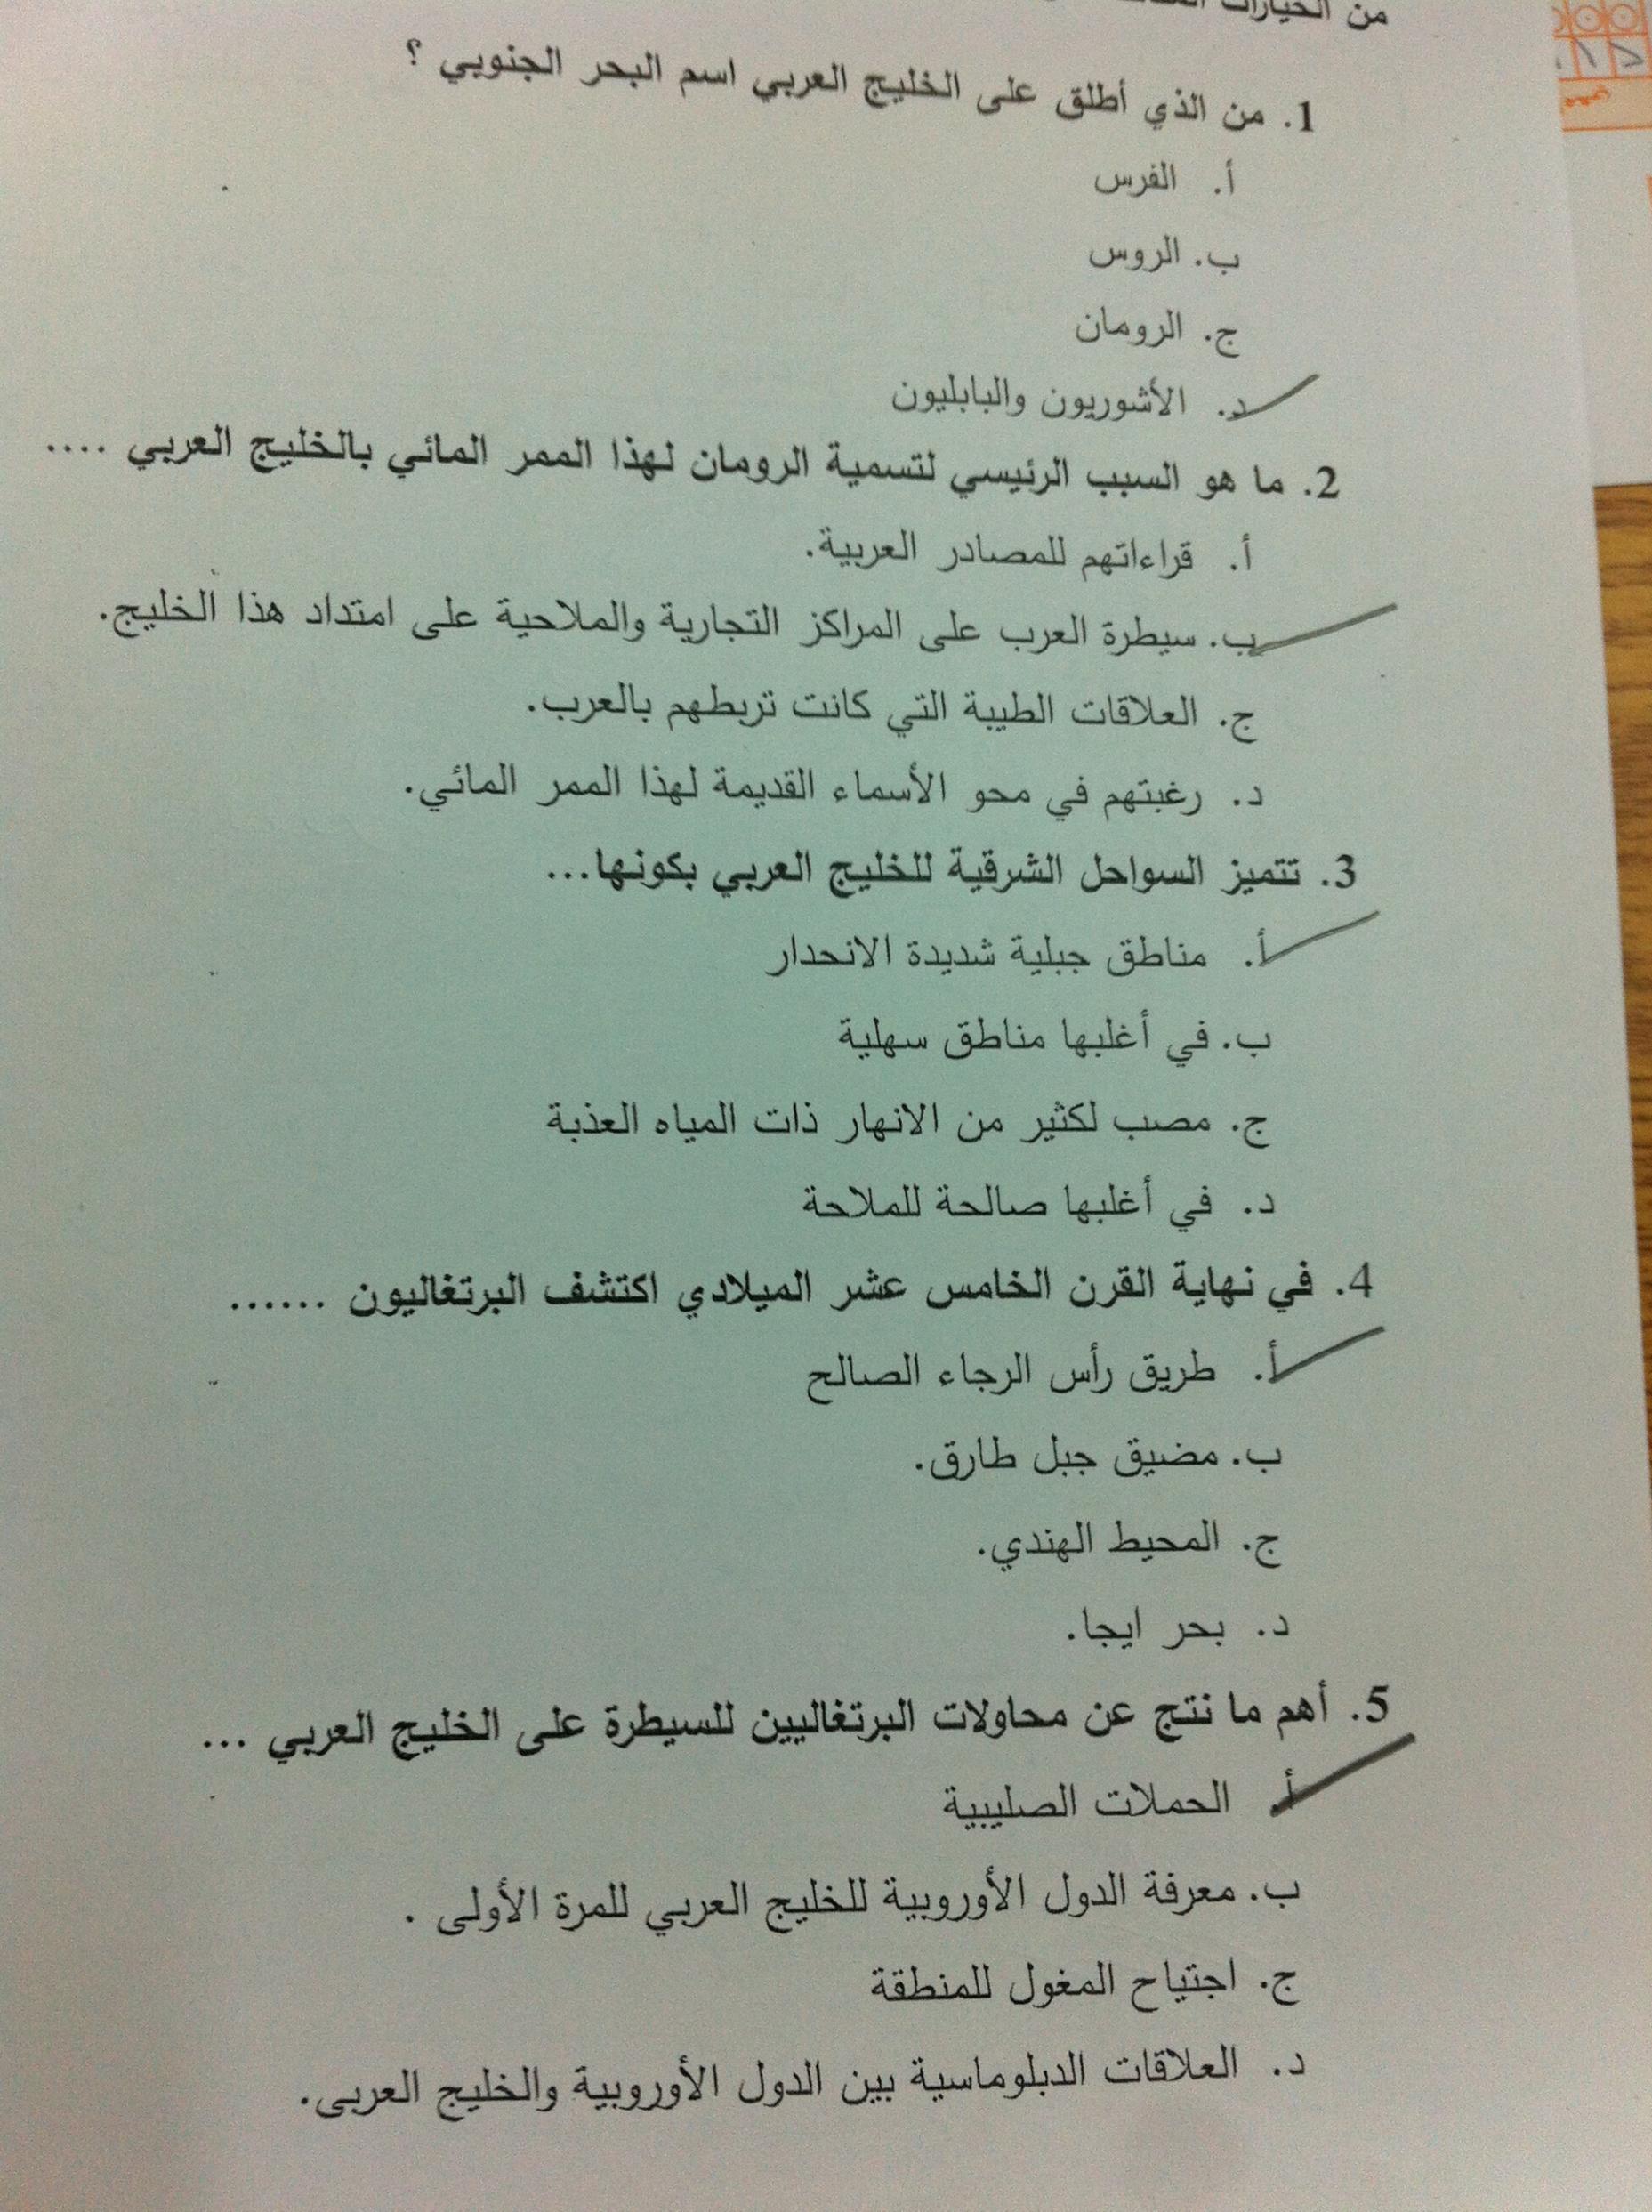 من الخيارات
1. من الذي أطلق على الخليج العربي اسم البحر الجنوبي ؟
أ. الفرس
ب. الروس
ج. الرومان
د. الأشوريون والبابليون
2. ما هو السبب الرئيسي لتسمية الرومان لهذا الممر المائي بالخليج العربي ....
أ. قراءاتهم للمصادر العربية.
ب. سيطرة العرب على المراكز التجارية والملاحية على امتداد هذا الخليج.
ج. العلاقات الطيبة التي كانت تربطهم بالعرب.
د. رغبتهم في محو الأسماء القديمة لهذا الممر المائي.
3. تتميز السواحل الشرقية للخليج العربي بكونها...
أ. مناطق جبلية شديدة الانحدار
ب. في أغلبها مناطق سهلية
ج. مصب لكثير من الانهار ذات المياه العذبة
د. في أغلبها صالحة للملاحة
4. في نهاية القرن الخامس عشر الميلادي اكتشف البرتغاليون ......
أ. طريق رأس الرجاء الصالح
ب. مضيق جبل طارق.
ج. المحيط الهندي.
د. بحر ايجا.
5. أهم ما نتج عن محاولات البرتغاليين للسيطرة على الخليج العربي ...
أ. الحملات الصليبية
ب. معرفة الدول الأوروبية للخليج العربي للمرة الأولى .
ج. اجتياح المغول للمنطقة
د. العلاقات الدبلوماسية بين الدول الأوروبية والخليج العربى.